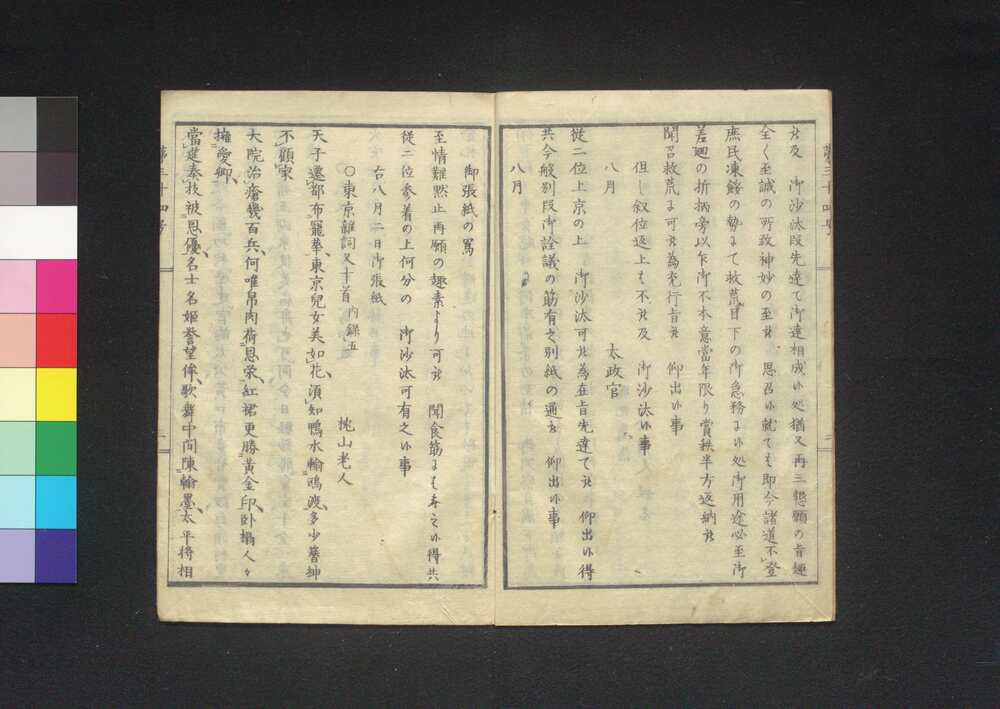 被及　御沙汰段先達て御達相成候処猶又再三懇願の旨趣
全く至誠の所致神妙の至被　思召候就ても即今諸道不登
庶民凍餒の勢にて救荒目下の御急務に候処御用途必至御
差廻の折柄旁以乍御不本意當年限り賞秩半方返納被
聞召救荒に可被為充行旨被　仰出候事
但し叙位返上も不被及　御沙汰候事
八月　太政官
従二位上京の上　御沙汰可被為在旨先達て被　仰出候得
共今般別段御詮議の筋有之別紙の通被　仰出候事
八月
御張紙の寫
至情難黙止再願の趣素より可被　聞食筋にも有之候得共
従二位参着の上何分の　御沙汰可有之候事
右八月二日御張紙
○東京雑詞又十首　内録五　枕山老人
天子遷都布寵華東京兒女美如花須知鴨水輸鴎渡多少簪紳
不顧家
大院治瘡幾百兵何唯帛肉荷恩榮紅裙更勝黄金印臥榻人々
擁愛卿
當筵奏技被恩優名士名姫誉望侔歌舞中間陳翰墨太平将相
第三十四号
第三十四号